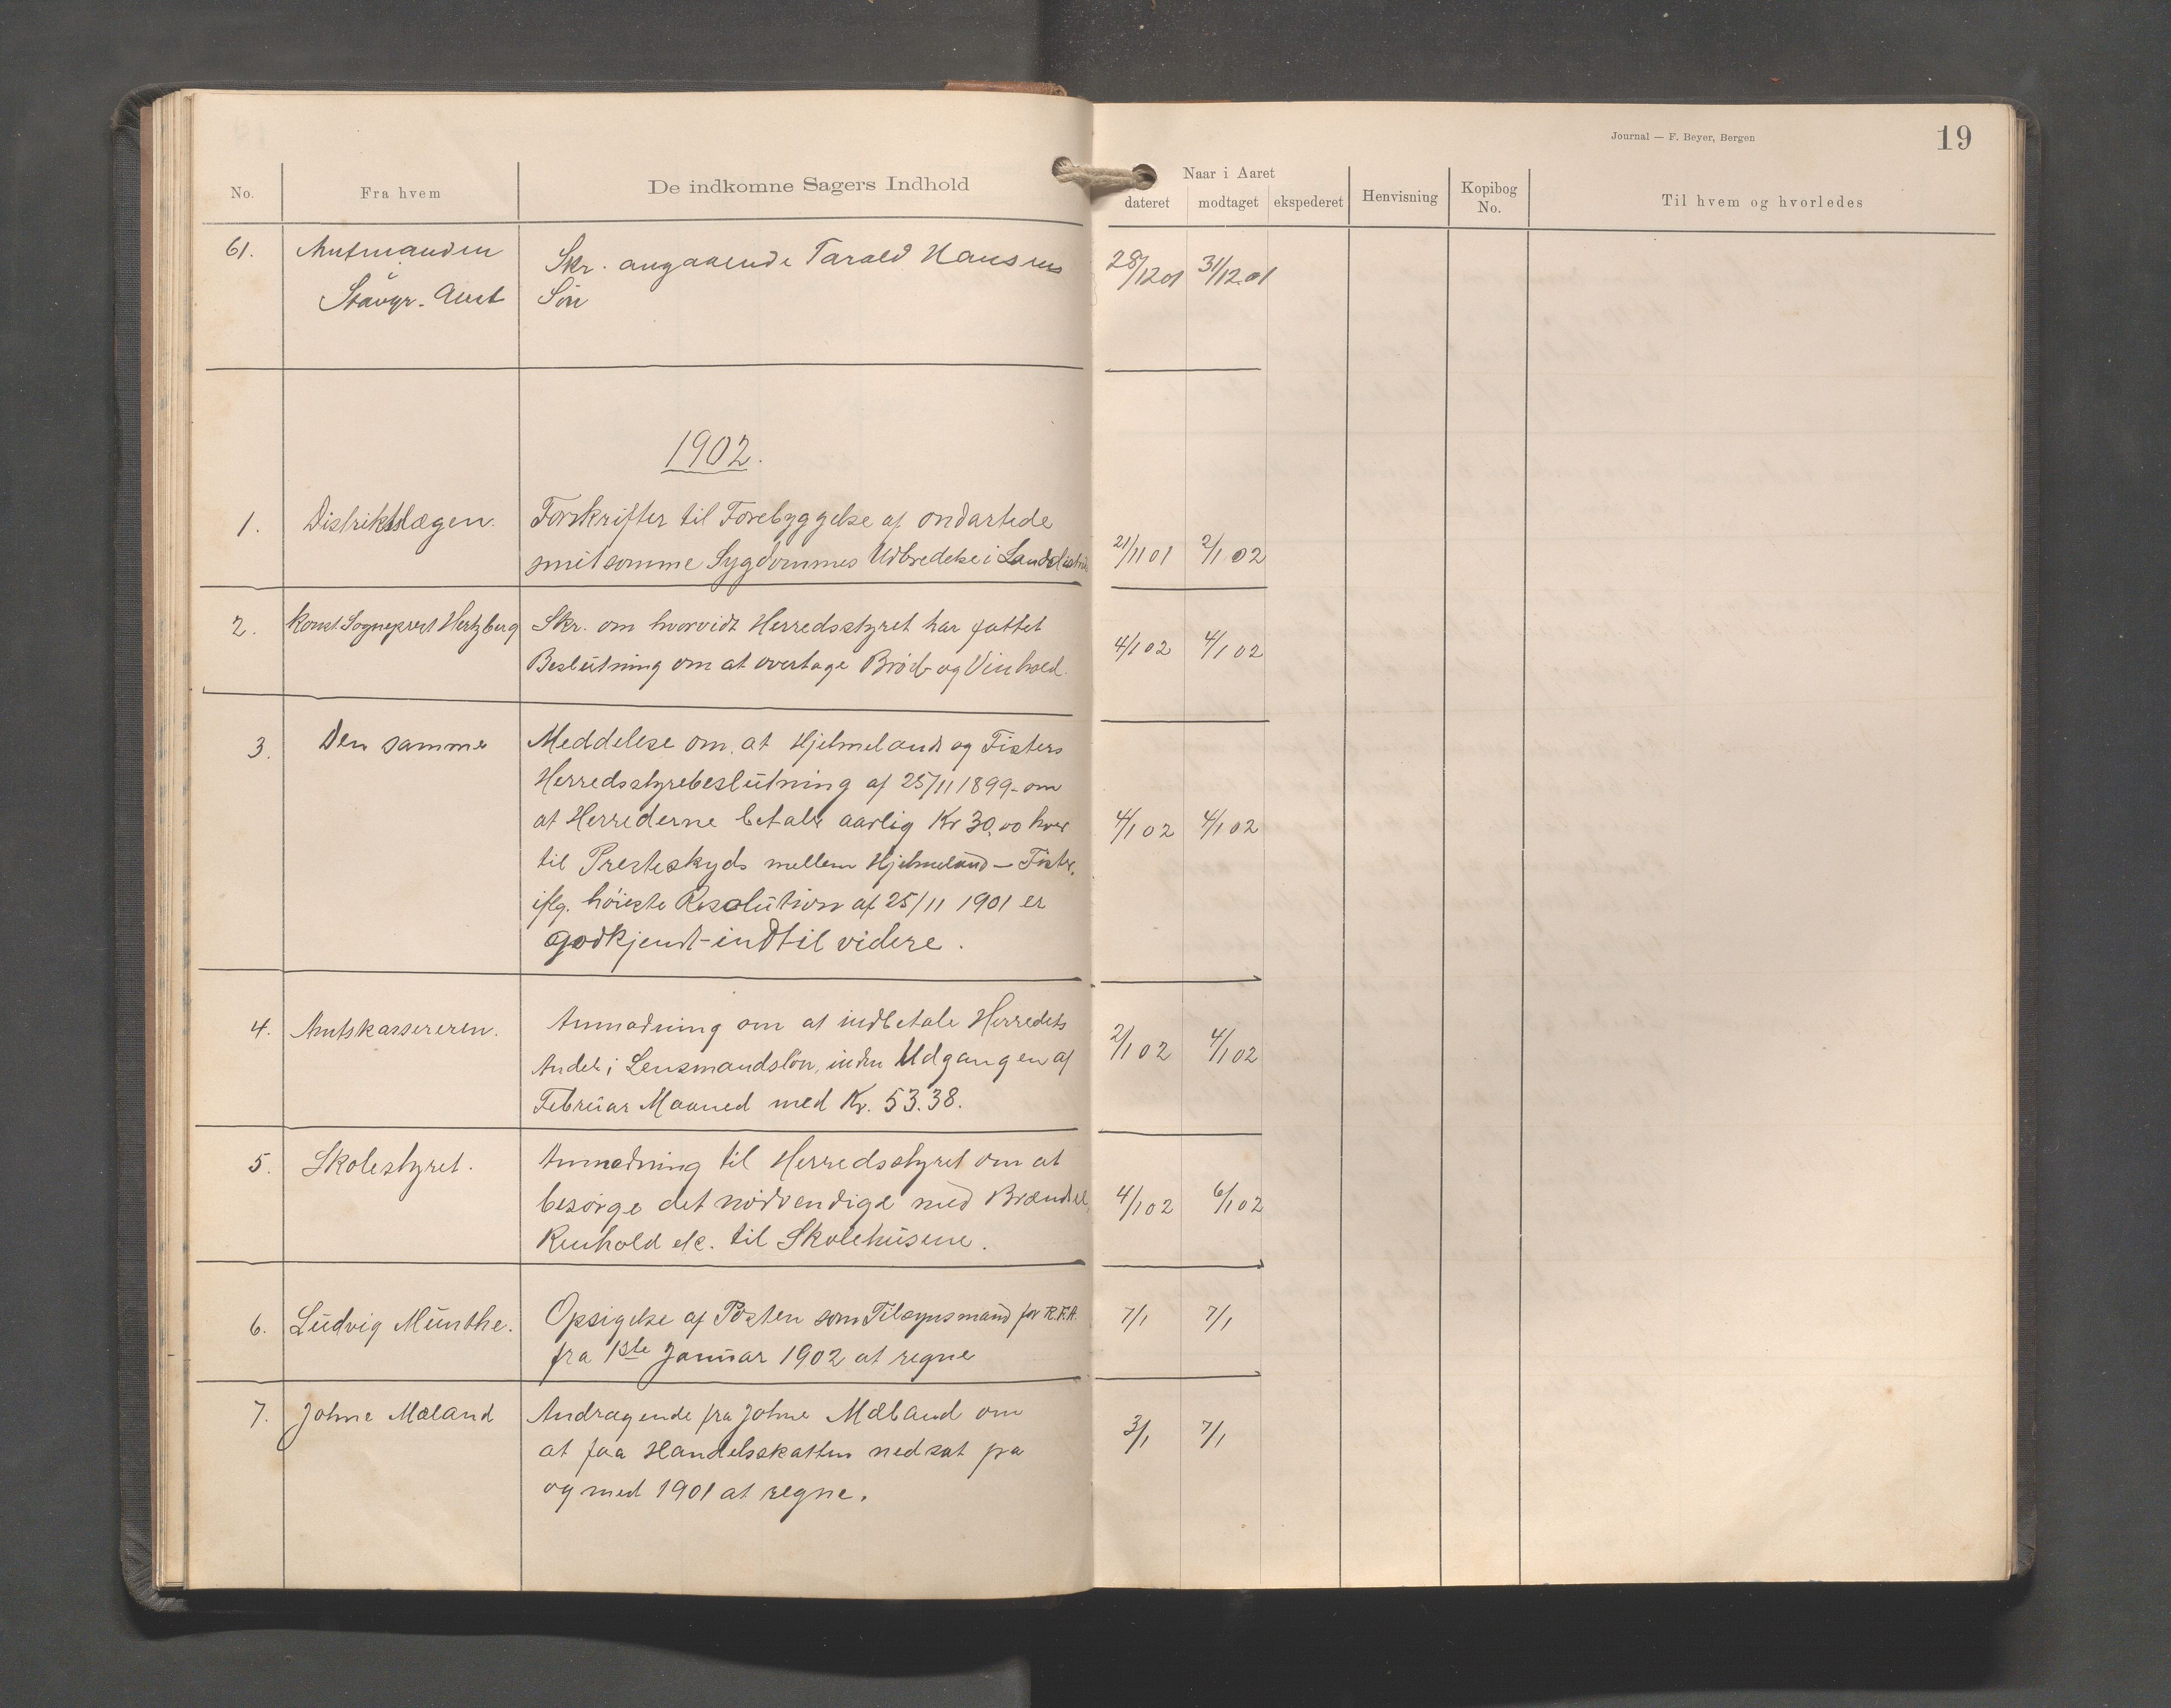 Journal — F. Beyer, Bergen
19
No.
Fra hvem
De indkomne Sagers Indhold
Naar i Aaret
dateret
modtaget
ekspederet
Henvisning
Kopibog No.
Til hvem og hvorledes
61. Amtmanden Skr. angaaende Tarald Hansens 28/12 01 31/12 01
Stavgr. Amt Søn
1902.
1. Distriktslægen. Forskrifter til Forebyggelse af ondartede
smitsomme Sygdommes Udbredelse i Landdistr 21/11 01 2/1 02
2. Konst. Sogneprest Hertzberg Skr. om hvorvidt Herredsstyret har fattet
Beslutning om at overtage Brød- og Vinhold. 4/1 02 4/1 02
3. Den samme Meddelese om, at Hjelmeland og Fisters
Herredsstyrebeslutning af 25/11 1899 - om
at Herrederne betaler aarlig Kr 30,00 hver 4/1 02 4/1 02
til Presteskyds mellem Hjelmeland — Fister,
iflg. høieste Resolution af 25/11 1901 er
godkjendt - indtil videre.
4. Amtskassereren. Anmodning om at indbetale Herredets
Andel i Lensmandsløn, inden Udgangen af 2/1 02 4/1 02
Februar Maaned med Kr. 53.38.
5. Skolestyret. Anmodning til Herredsstyret om at
besørge det nødvendige med Brændsel, 4/1 02 6/1 02
Renhold etc. til Skolehusene.
6. Ludvig Munthe. Opsigelse af Posten som Tilsynsmand for R.F.A. 7/1 7/1
fra 1ste Januar 1902 at regne
7. Johne Mæland Andragende fra Johne Mæland om
at faa Handelsskatten nedsat fra 3/1 7/1
og med 1901 at regne.